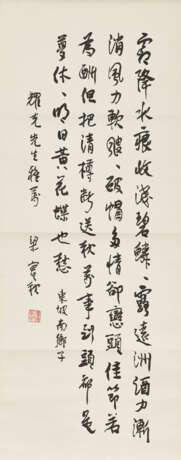 霜降水痕收淺碧鱗、露遠洲酒力漸
消風力軟颼、破帽多情卻戀頭佳節若
為酬但把清樽斷送秋萬事到頭都是
夢休、明日黃花蝶也愁 東坡南鄉子
耀先生雅屬 梁實秋